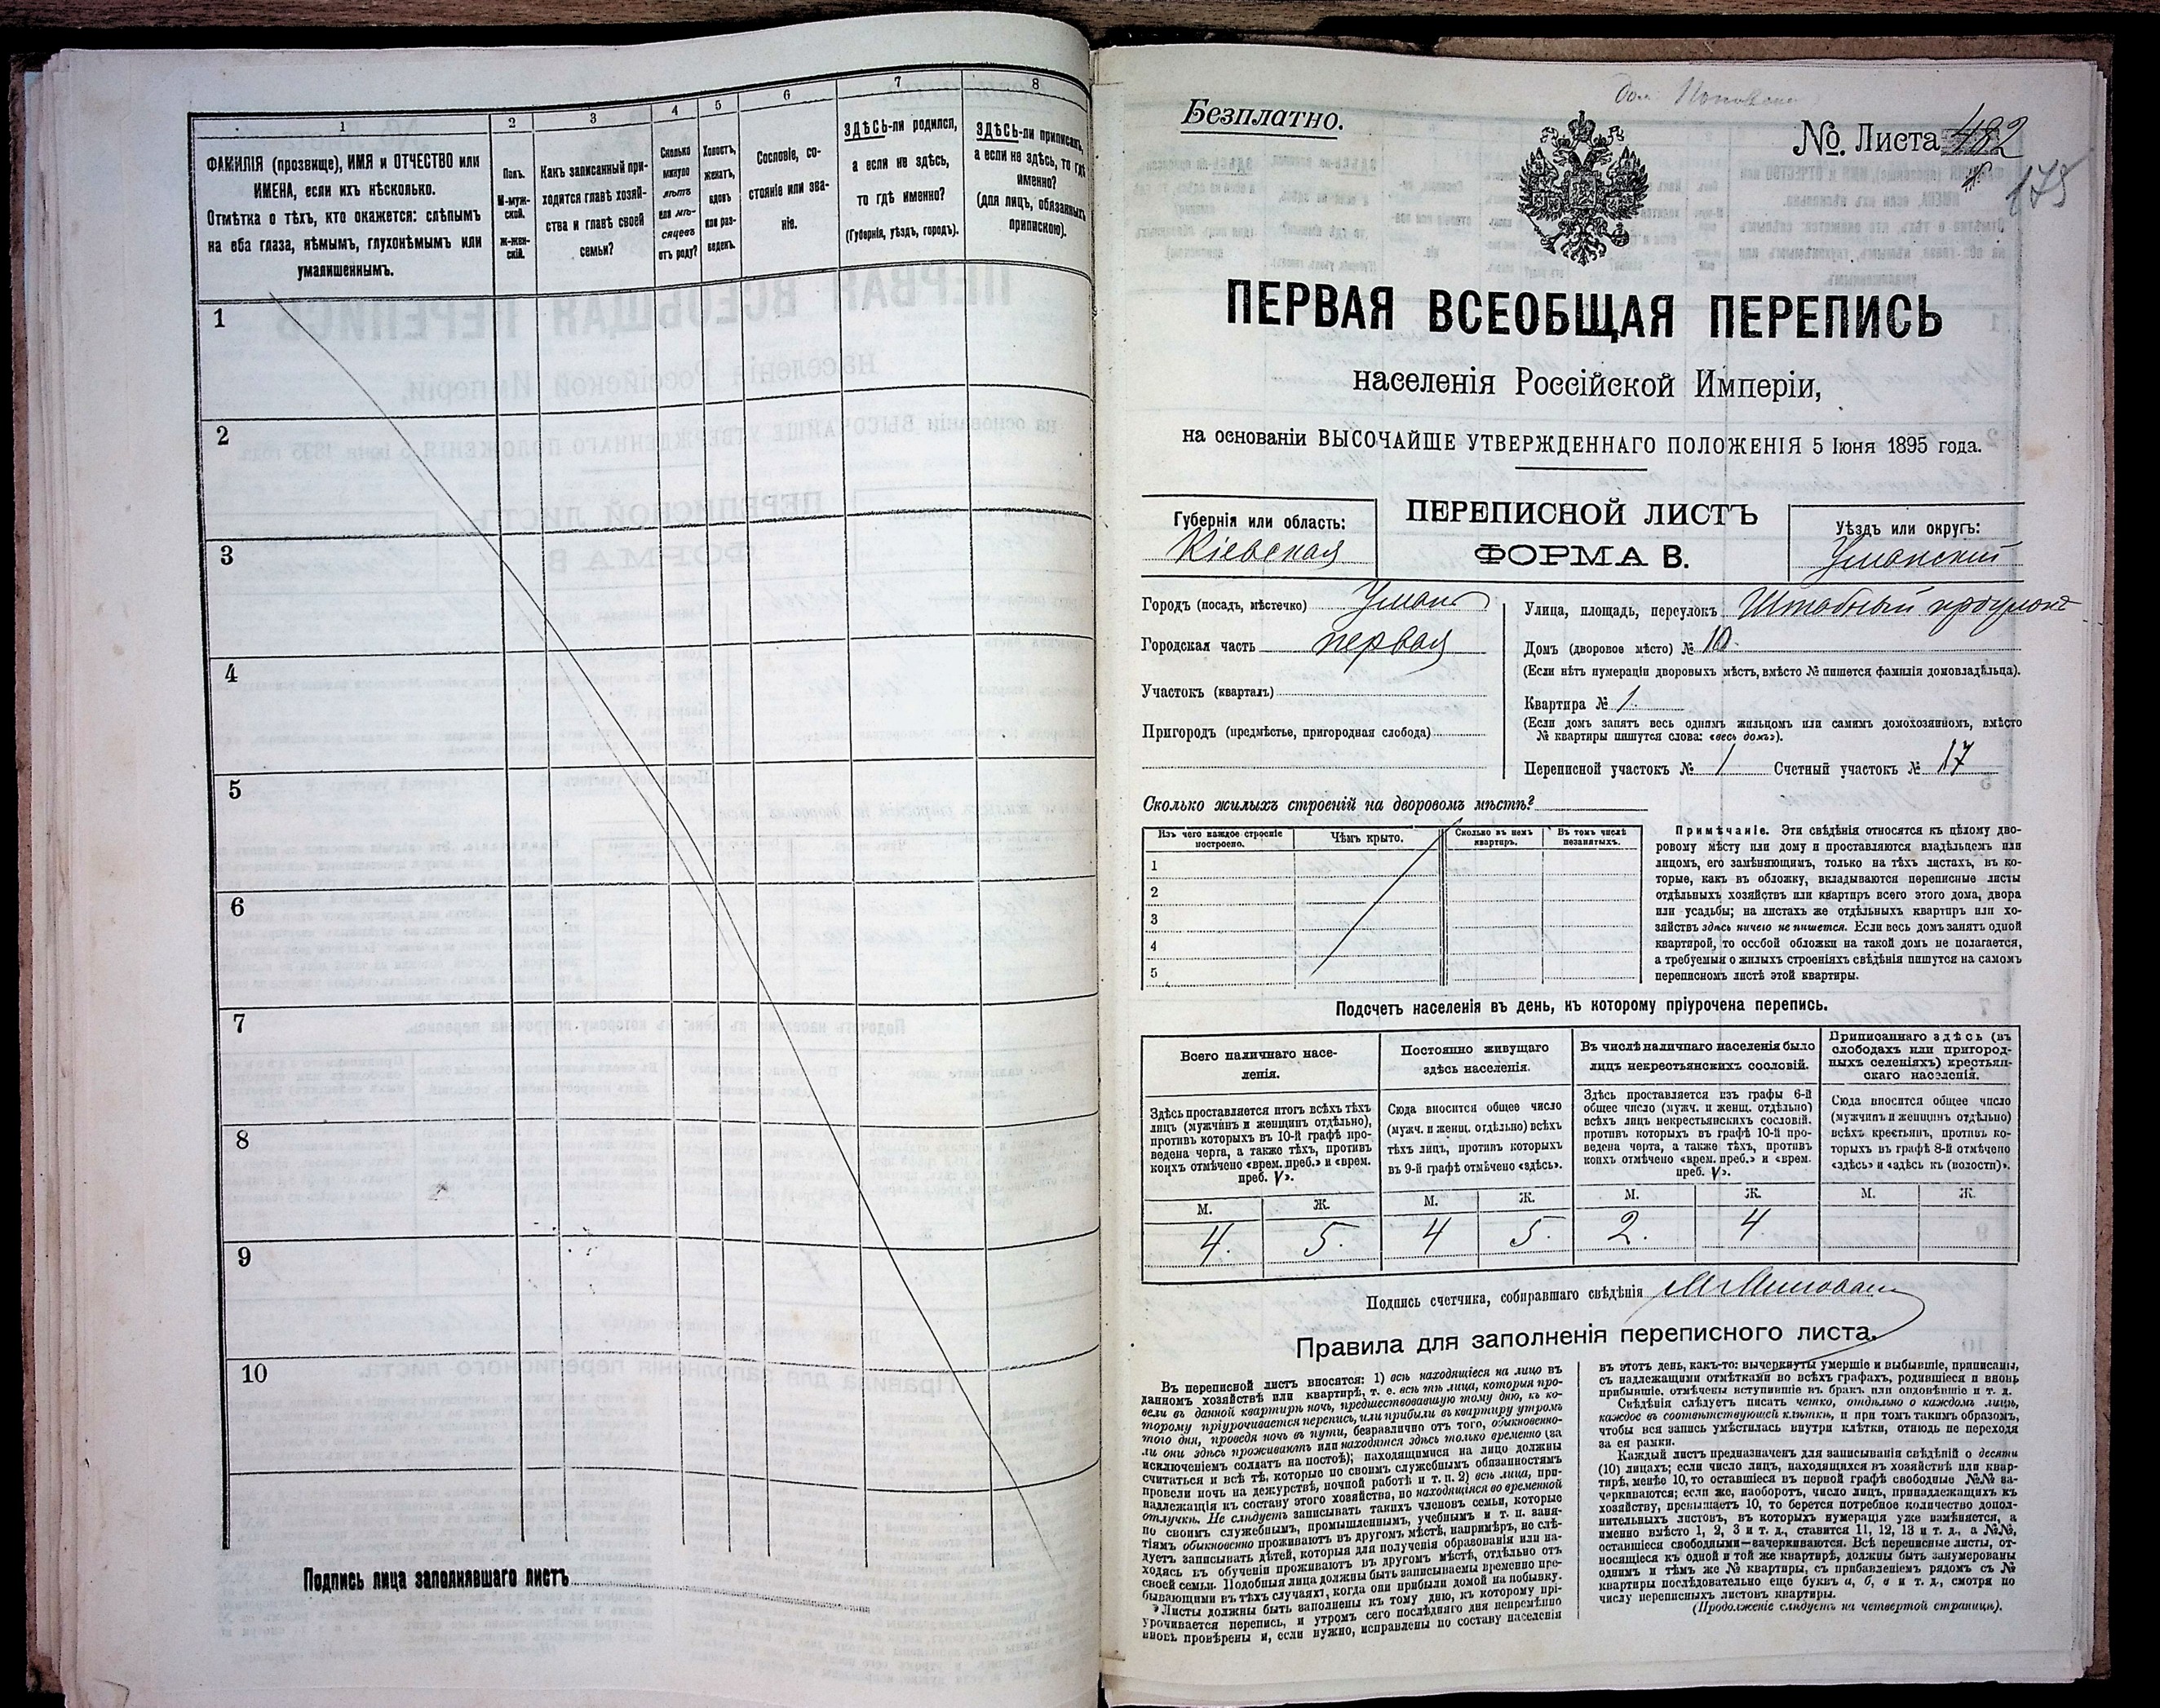 1
2
3
4
5
6
7
8
ФАМИЛІЯ (прозвище), ИМЯ и ОТЧЕСТВО или
ИМЕНА, если ихъ нѣсколько.
Отмѣтка о тѣхъ, кто окажется: слѣпымъ
на оба глаза, нѣмымъ, глухонѣмымъ или
умалишеннымъ.
Полъ.
М-муж-
ской.
Ж-жен-
скій.
Какъ записанный при-
ходится главѣ хозяй-
ства и главѣ своей
семьи?
Сколько
минуло
лѣтъ
или мѣ-
сяцевъ
отъ роду?
Холостъ,
женатъ,
вдовъ
или раз-
веденъ.
Сословіе, со-
стояніе или зва-
ніе.
ЗДѢСЬ-ли родился,
а если не здѣсь,
то гдѣ именно?
(Губернія, уѣздъ, городъ).
ЗДѢСЬ-ли приписанъ,
а если не здѣсь, то гдѣ
именно?
(для лицъ, обязанныхъ
припискою).
1
2
3
4
5
6
7
8
9
10
Подпись лица заполнявшаго листъ
Безплатно.
№ Листа 482
175
ПЕРВАЯ ВСЕОБЩАЯ ПЕРЕПИСЬ
населенія Россійской Имперіи,
на основаніи ВЫСОЧАЙШЕ УТВЕРЖДЕННАГО ПОЛОЖЕНІЯ 5 Іюня 1895 года.
Губернія или область:
Кіевская
ПЕРЕПИСНОЙ ЛИСТЪ
ФОРМА В.
Уѣздъ или округъ:
Уманскій
Городъ (посадъ, мѣстечко) Умань
Городская часть первая
Участокъ (кварталъ)
Пригородъ (предмѣстье, пригородная слобода)
Улица, площадь, переулокъ Штабный
Домъ (дворовое мѣсто) № 10.
(Если нѣтъ нумераціи дворовыхъ мѣстъ, вмѣсто № пишется фамилія домовладѣльца).
Квартира № 1.
(Если домъ занятъ весь однимъ жильцомъ или самимъ домохозяиномъ, вмѣсто
№ квартиры пишутся слова: «весь домъ»).
Переписной участокъ № 1 Счетный участокъ № 17
Сколько жилыхъ строеній на дворовомъ мѣстѣ?
Изъ чего каждое строеніе
построено.
Чѣмъ крыто.
Сколько въ немъ
квартиръ.
Въ томъ числѣ
незанятыхъ.
1
2
3
4
5
Примѣчаніе. Эти свѣдѣнія относятся къ цѣлому дво-
ровому мѣсту или дому и проставляются владѣльцемъ или
лицомъ, его замѣняющимъ, только на тѣхъ листахъ, въ ко-
торые, какъ въ обложку, вкладываются переписные листы
отдѣльныхъ хозяйствъ или квартиръ всего этого дома, двора
или усадьбы; на листахъ же отдѣльныхъ квартиръ или хо-
зяйствъ здѣсь ничего не пишется. Если весь домъ занятъ одной
квартирой, то особой обложки на такой домъ не полагается,
а требуемыя о жилыхъ строеніяхъ свѣдѣнія пишутся на самомъ
переписномъ листѣ этой квартиры.
Подсчетъ населенія въ день, къ которому пріурочена перепись.
Всего наличнаго насе-
ленія.
Постоянно живущаго
здѣсь населенія.
Въ числѣ наличнаго населенія было
лицъ некрестьянскихъ сословій.
Приписаннаго здѣсь (въ
слободахъ или пригород-
ныхъ селеніяхъ) крестьян-
скаго населенія.
Здѣсь проставляется итогъ всѣхъ тѣхъ
лицъ (мужчинъ и женщинъ отдѣльно),
противъ которыхъ въ 10-й графѣ про-
ведена черта, а также тѣхъ, противъ
коихъ отмѣчено «врем. преб.» и «врем.
преб. V».
Сюда вносится общее число
(мужч. и женщ. отдѣльно) всѣхъ
тѣхъ лицъ, противъ которыхъ
въ 9-й графѣ отмѣчено «здѣсь».
Здѣсь проставляется изъ графы 6-й
общее число (мужч. и женщ. отдѣльно)
всѣхъ лицъ некрестьянскихъ сословій.
противъ которыхъ въ графѣ 10-й про-
ведена черта, а также тѣхъ, противъ
коихъ отмѣчено «врем. преб.» и «врем.
преб. V».
Сюда вносится общее число
(мужчинъ и женщинъ отдѣльно)
всѣхъ крестьянъ, противъ ко-
торыхъ въ графѣ 8-й отмѣчено
«здѣсь» и «здѣсь къ (волости)».
М. Ж. М. Ж. М. Ж. М. Ж.
4. 5. 4 5. 2. 4
Подпись счетчика, собиравшаго свѣдѣнія
Правила для заполненія переписного листа.
Въ переписной листъ вносятся: 1) всѣ находящіеся на лицо въ
данномъ хозяйствѣ или квартирѣ, т. е. всѣ тѣ лица, которыя про-
вели въ данной квартирѣ ночь, предшествовавшую тому дню, къ ко-
торому пріурочивается перепись, или прибыли въ квартиру утромъ
того дня, проведя ночь въ пути, безразлично отъ того, обыкновенно-
ли они здѣсь проживаютъ или находятся здѣсь только временно (за
исключеніемъ солдатъ на постоѣ); находящимися на лицо должны
считаться и всѣ тѣ, которые по своимъ служебнымъ обязанностямъ
провели ночь на дежурствѣ, ночной работѣ и т. п. 2) всѣ лица, при-
надлежащія къ составу этого хозяйства, но находящіяся во временной
отлучкѣ. Не слѣдуетъ записывать такихъ членовъ семьи, которые
по своимъ служебнымъ, промышленнымъ, учебнымъ и т. п. заня-
тіямъ обыкновенно проживаютъ въ другомъ мѣстѣ, напримѣръ, не слѣ-
дуетъ записывать дѣтей, которыя для получения образованія или на-
ходясь въ обученіи проживаютъ въ другомъ мѣстѣ, отдѣльно отъ
своей семьи. Подобныя лица должны быть записываемы временно пре-
бывающими въ тѣхъ случаяхъ, когда они прибыли домой на побывку.
Листы должны быть заполнены къ тому дню, къ которому прі-
урочивается перепись, и утромъ сего послѣдняго дня непремѣнно
вновь провѣрены и, если нужно, исправлены по составу населенія
въ этотъ день, какъ-то: вычеркнуты умершіе и выбывшіе, приписаны,
съ надлежащими отмѣтками во всѣхъ графахъ, родившіеся и вновь
прибывшіе, отмѣчены вступившіе въ бракъ или овдовѣвшіе и т. д.
Свѣдѣнія слѣдуетъ писать четко, отдѣльно о каждомъ лицѣ,
каждое въ соотвѣтствующей клѣткѣ, и при томъ такимъ образомъ,
чтобы вся запись умѣстилась внутри клѣтки, отнюдь не переходя
за ея рамки.
Каждый листъ предназначенъ для записыванія свѣдѣній о десяти
(10) лицахъ; если число лицъ, находящихся въ хозяйствѣ или квар-
тирѣ, менѣе 10, то оставшіеся въ первой графѣ свободные №№ за-
черкиваются; если же, наоборотъ, число лицъ, принадлежащихъ къ
хозяйству, превышаетъ 10, то берется потребное количество допол-
нительныхъ листовъ, въ которыхъ нумерація уже измѣняется, а
именно вмѣсто 1, 2, 3 и т. д., ставится 11, 12, 13 и т. д., а №№,
оставшіеся свободными—зачеркиваются. Всѣ переписные листы, от-
носящіеся къ одной и той же квартирѣ, должны быть занумерованы
однимъ и тѣмъ же № квартиры, съ прибавленіемъ рядомъ съ №
квартиры послѣдовательно еще буквъ а, б, в и т. д., смотря по
числу переписныхъ листовъ квартиры.
(Продолженіе слѣдуетъ на четвертой страницѣ).